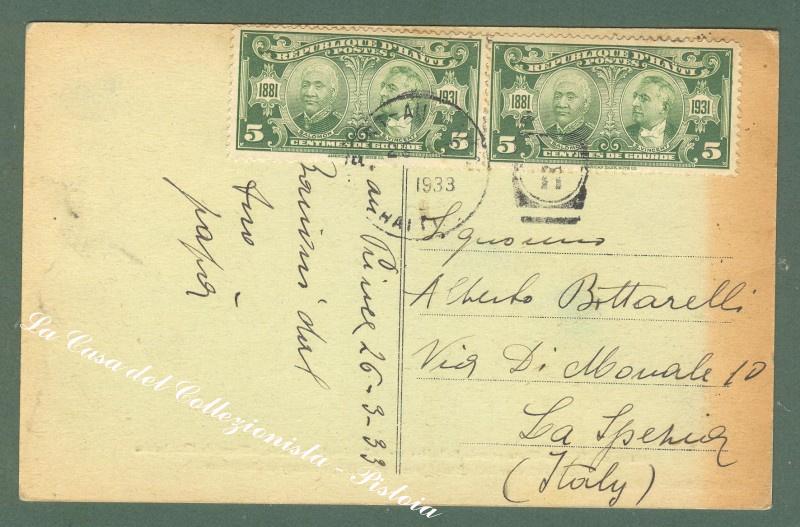 REPUBLIQUE D'HAÏTI
POSTES
1881
1931
SALOMON
S. VINCENT
5
5
CENTIMES DE GOURDE
REPUBLIQUE D'HAÏTI
POSTES
1881
1931
SALOMON
S. VINCENT
5
5
CENTIMES DE GOURDE
AU
1933
HAITI
au Prince 26-3-33
Bacioni dal
tuo
papà
Signorino
Alberto Bottarelli
Via Di Monale 10
La Spezia
(Italy)
La Casa del Collezionista - Pistoia